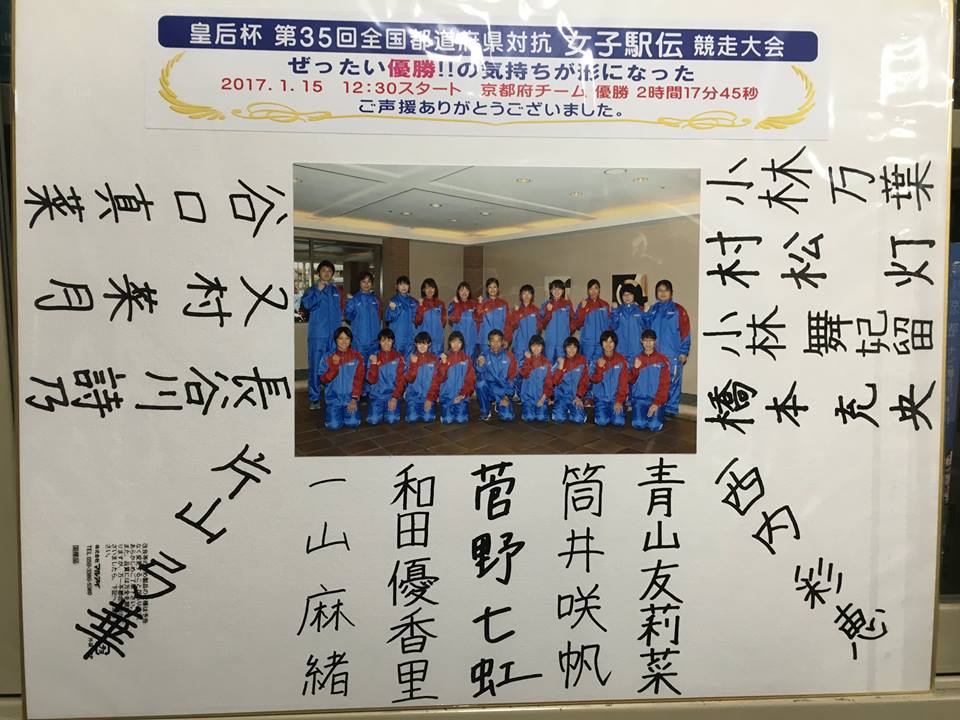 皇后杯 第35回全国都道府県対抗 女子駅伝 競走大会
ぜったい優勝!!の気持ちが形になった
2017.1.15 12:30スタート 京都府チーム 優勝 2時間17分45秒
ご声援ありがとうございました。
小林万葉
村松灯
小林舞妃留
橋本充央
彩恵
青山友莉菜
筒井咲帆
菅野七虹
和田優香里
一山麻緒
片山弘華
長谷川詩乃
又村菜月
谷口真菜
国産品